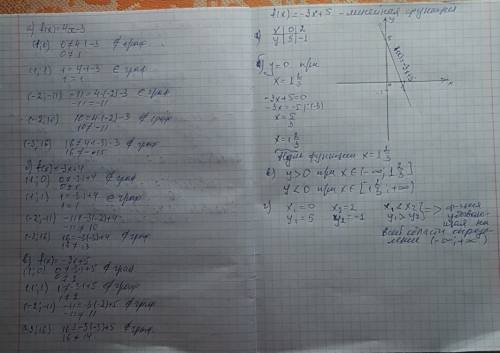 а) f(x)=4x-3
(1;0) 0≠4·1-3 ∉ граф
0≠1
(1;1) 1=4·1-3 ∈ граф
1=1
(-2;-11) -11=4·(-2)-3 ∈ граф
-11=-11
(-2;16) 16≠4·(-2)-3 ∉ граф
16≠-11
(-3;16) 16≠4·(-3)-3 ∉ граф
16≠-15
б) f(x)=-3x+4
(1;0) 0≠-3·1+4 ∉ граф
(1;1) 1=-3·1+4 ∈ граф
1=1
(-2;-11) -11≠-3(-2)+4 ∉ граф
-11≠10
в) f(x)=-3x+5
(1;0) 0≠-3·1+5 ∉ граф
0≠2
(1;1) 1≠-3·1+5 ∉ граф
1≠2
(-2;-11) -11=-3(-2)+5 ∉ граф
-11≠11
16=-3(-3)+5 ∉ граф
16≠14
f(x)=-3x+5 - линейная функция
x | 0 | 2
y | 5 | -1
y=0 при
x=1 2/3
-3x+5=0
-3x=-5 |:(-3)
x=5/3
x=1 2/3
Нуль функции x=1 2/3
в) y>0 при x∈(-∞;1 2/3)
y<0 при x∈(1 2/3;+∞)
г) x₁=0 x₂=2 x₁<x₂
y₁=5 y₂=-1 y₁>y₂ => ф-ция
убывающая на
всей области определения (-∞;+∞)
y
x
f(x)=-3x+5